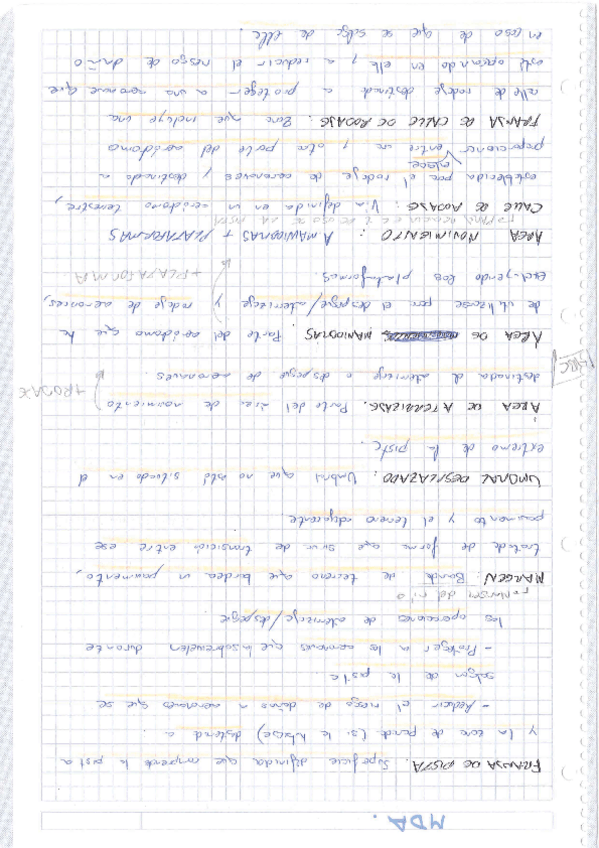 MDA.
FRANJA DE PISTA. Superficie definida que comprende la pista
y la zona de parada (si la hubiese) destinada a:
- Reducir el riesgo de daños a aeronaves que se
salgan de la pista
- Proteger a las aeronaves que la sobrevuelen durante
las operaciones de aterrizaje/despegue
MARGEN: Banda de terreno que bordea un pavimento,
tratada de forma que sirva de transición entre ese
pavimento y el terreno adyacente
UMBRAL DESPLAZADO: Umbral que no está situado en el
extremo de la pista.
ÁREA DE ATERRIZAJE. Parte del área de movimiento
destinada al aterrizaje o despegue de aeronaves
+ RODAJE
ÁREA DE MANIOBRAS. Parte del aeródromo que ha
de utilizarse para el despegue/aterrizaje y rodaje de aeronaves,
excluyendo las plataformas.
+ PLATAFORMA
ÁREA MOVIMIENTO: A MANIOBRAS + PLATAFORMAS
CALLE DE RODAJE: Vía definida en un aeródromo terrestre,
establecida para el rodaje de aeronaves y destinada a
proporcionar enlace entre una y otra parte del aeródromo
FRANJA DE CALLE DE RODAJE: Zona que incluye una
calle de rodaje destinada a proteger a una aeronave que
esté operando en ella y a reducir el riesgo de daño
en caso de que se salga de ella.